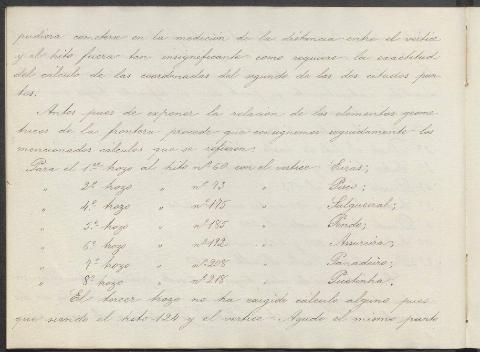 pudiera cometerse en la medición de la distancia entre el vertice
y el hito fuera tan insignificante como requiere la exactitud
del cálculo de las coordenadas del segundo de los dos citados pun-
tos.
Antes pues de exponer la relación de los elementos geome-
tricos de la frontera procede que consignemos seguidamente los
mencionados cálculos que se refieren:
Para el 1er trozo al hito nº 60 con el vertice Eiras;
" 2º trozo " nº 93 " Pisco;
" 4º trozo " nº 175 " Salgueiral;
" 5º trozo " nº 185 " Pinde;
" 6º trozo " nº 192 " Asureira;
" 7º trozo " nº 208 " Panadeira;
" 8º trozo " nº 218 "
El tercer trozo no ha exigido cálculo alguno pues
que siendo el hito 124 y el vertice Agudo el mismo punto